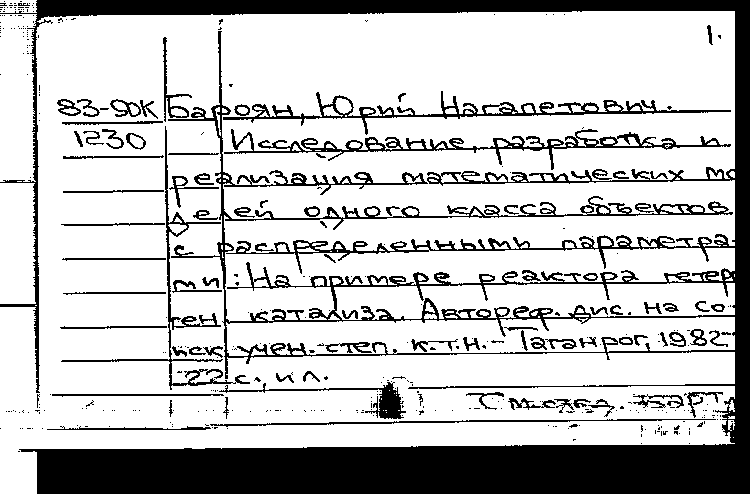 1.
83-9ДК Бароян, Юрий Нагапетович.
1230 Исследование, разработка и
реализация математических мо
делей одного класса объектов
с распределенными параметра-
ми: На примере реактора гетер
ген. катализа. Автореф. дис. на со-
иск. учен. степ. к.т.н. - Таганрог, 1982
22 с., ил.
См. след. карт